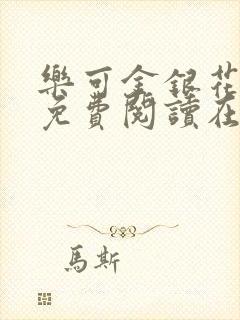 樂可金銀花
免費閱讀在
馬斯